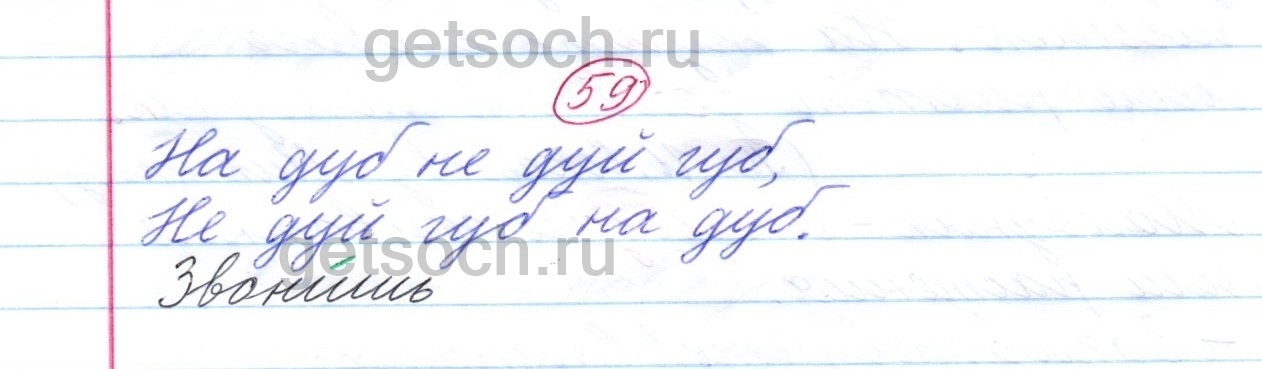 getsoch.ru
59
На дуб не дуй губ,
Не дуй губ на дуб.
getsoch.ru
Звони́шь